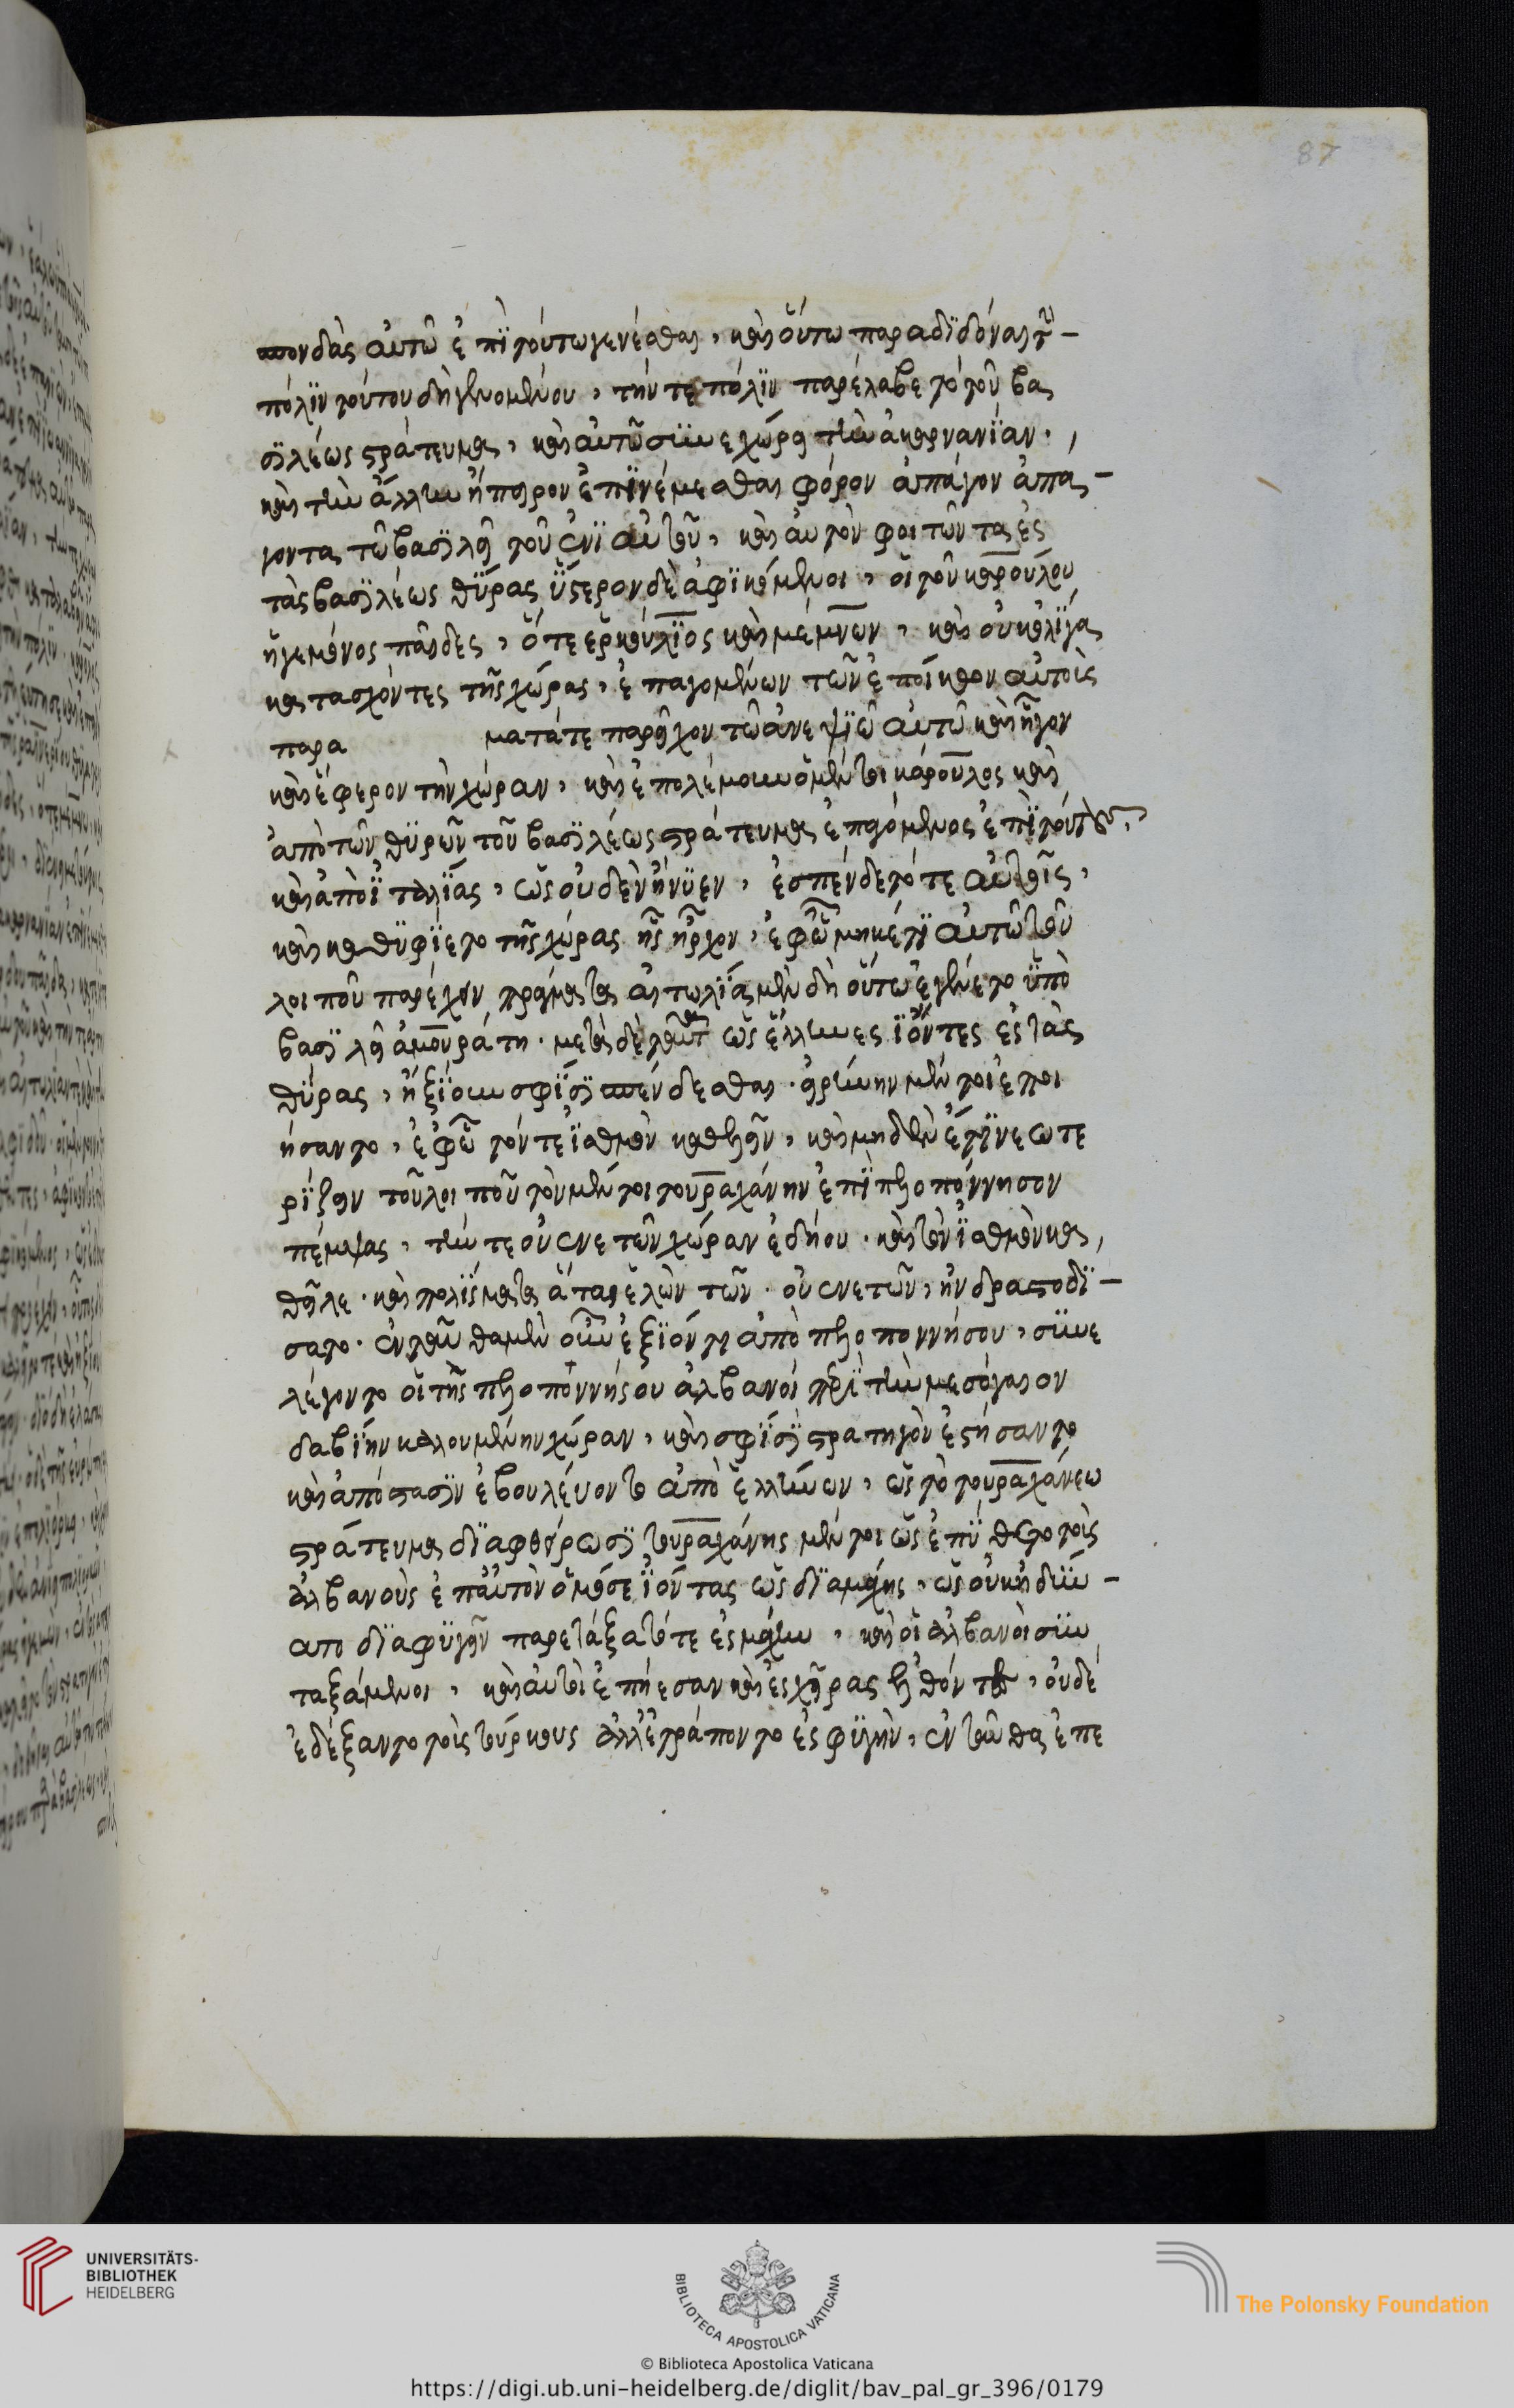 87
σπονδὰς αὐτῶ ἐπὶ τούτω γενέσθαι, καὶ οὕτω παραδιδόναι τὴν
πόλιν τούτου δὴ γενομένου, τήν τε πόλιν παρέλαβε τὸ τοῦ βα
σιλέως στράτευμα, καὶ αὐτῶ συνεχώρει τὴν ἀκαρνανίαν,
καὶ τὴν ἄλλην ἤπειρον ἐπινέμεσθαι φόρον ἀπάγον ἀπα
γοντα τῶ βασιλεῖ τοῦ ἐνιαυτοῦ, καὶ αὐτὸν φοιτῶντα ἐς
τὰς βασιλέως θύρας ὕστερον δὲ ἀφικόμενοι, οἱ τοῦ καρούλου
ἡγεμόνος παῖδες, ὅτε ἑρκούλιος καὶ μέμνων, καὶ οὐκ ὀλίγα
κατασχόντες τῆς χώρας, ἐπαγομένων τῶν ἐποίκθον αὐτοῖς
παρα ματά τε παρεῖχον τῶ ἀνεψιῶ αὐτῶ καὶ ἦγον
καὶ ἔφερον τὴν χώραν, καὶ ἐπολέμουν ὁ μέντοι κάρουλος καὶ
ἀπὸ τῶν θυρῶν τοῦ βασιλέως στράτευμα ἐπαγόμενος ἐπὶ τούτους,
καὶ ἀπὸ ἰταλίας, ὡς οὐδὲν ἤνυεν, ἐσπένδετό τε αὐτοῖς,
καὶ καθυφίετο τῆς χώρας ἧς ἦρχον, ἐφ ὧ μηκέτι αὐτῶ τοῦ
λοιποῦ παρέχειν πράγματα αἰτωλία μὲν δὴ οὕτω ἐγένετο ὑπὸ
βασιλεῖ ἀμουράτη. μετὰ δὲ ταῦτα ὡς ἕλληνες ἰόντες ἐς τὰς
θύρας, ἠξίουν σφίσι σπένδεσθαι. εἰρήνην μέντοι ἐποι
ήσαντο, ἐφ ὧ τόν τε ἰσθμὸν καθελεῖν, καὶ μηδὲν ἔτι νεωτε
ρίζειν τοῦ λοιποῦ τὸν μέντοι τουραχάνην ἐπὶ πελοπόννησον
πέμψας, τήν τε οὐενετῶν χώραν ἐδήου. καὶ τὸν ἰσθμὸν κα
θεῖλε. καὶ πολίσματα ἄττα ἑλὼν τῶν. οὐενετῶν, ἠνδραποδί
σατο. ἐνταῦθα μὲν οὖν ἐξιόντι ἀπὸ πελοποννήσου, συνε
λέγοντο οἱ τῆς πελοποννήσου ἀλβανοί περὶ τὴν μεσόγαιον
δαβίην καλουμένην χώραν, καὶ σφίσι στρατηγὸν ἐστήσαντο
καὶ ἀπόστασιν ἐβουλεύοντο ἀπὸ ἑλλήνων, ὡς τὸ τουραχάνεω
στράτευμα διαφθείρωσι τουραχάνης μέντοι ὡς ἐπύθετο τοῖς
ἀλβανοὺς ἐπ αὐτὸν ὁμόσε ἰόντας ὡς διαμάχης, ὡς οὐκ ἠδύν
ατο διαφυγεῖν παρετάξατό τε ἐς μάχην, καὶ οἱ ἀλβανοὶ συν
ταξάμενοι, καὶ αὐτοὶ ἐπήεσαν καὶ ἐς χεῖρας ἐλθόντες, οὐδὲ
ἐδέξαντο τοὶς τούρκους ἀλλ ἐτράποντο ἐς φυγὴν, ἐνταῦθα ἐπε
UNIVERSITÄTS-
BIBLIOTHEK
HEIDELBERG
BIBLIOTECA APOSTOLICA VATICANA
The Polonsky Foundation
© Biblioteca Apostolica Vaticana
https://digi.ub.uni-heidelberg.de/diglit/bav_pal_gr_396/0179